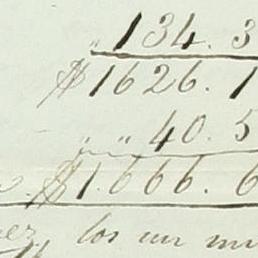 „ 134. 3
$1626. 1
„ „ 40. 5
$1.666. 6
los un mi